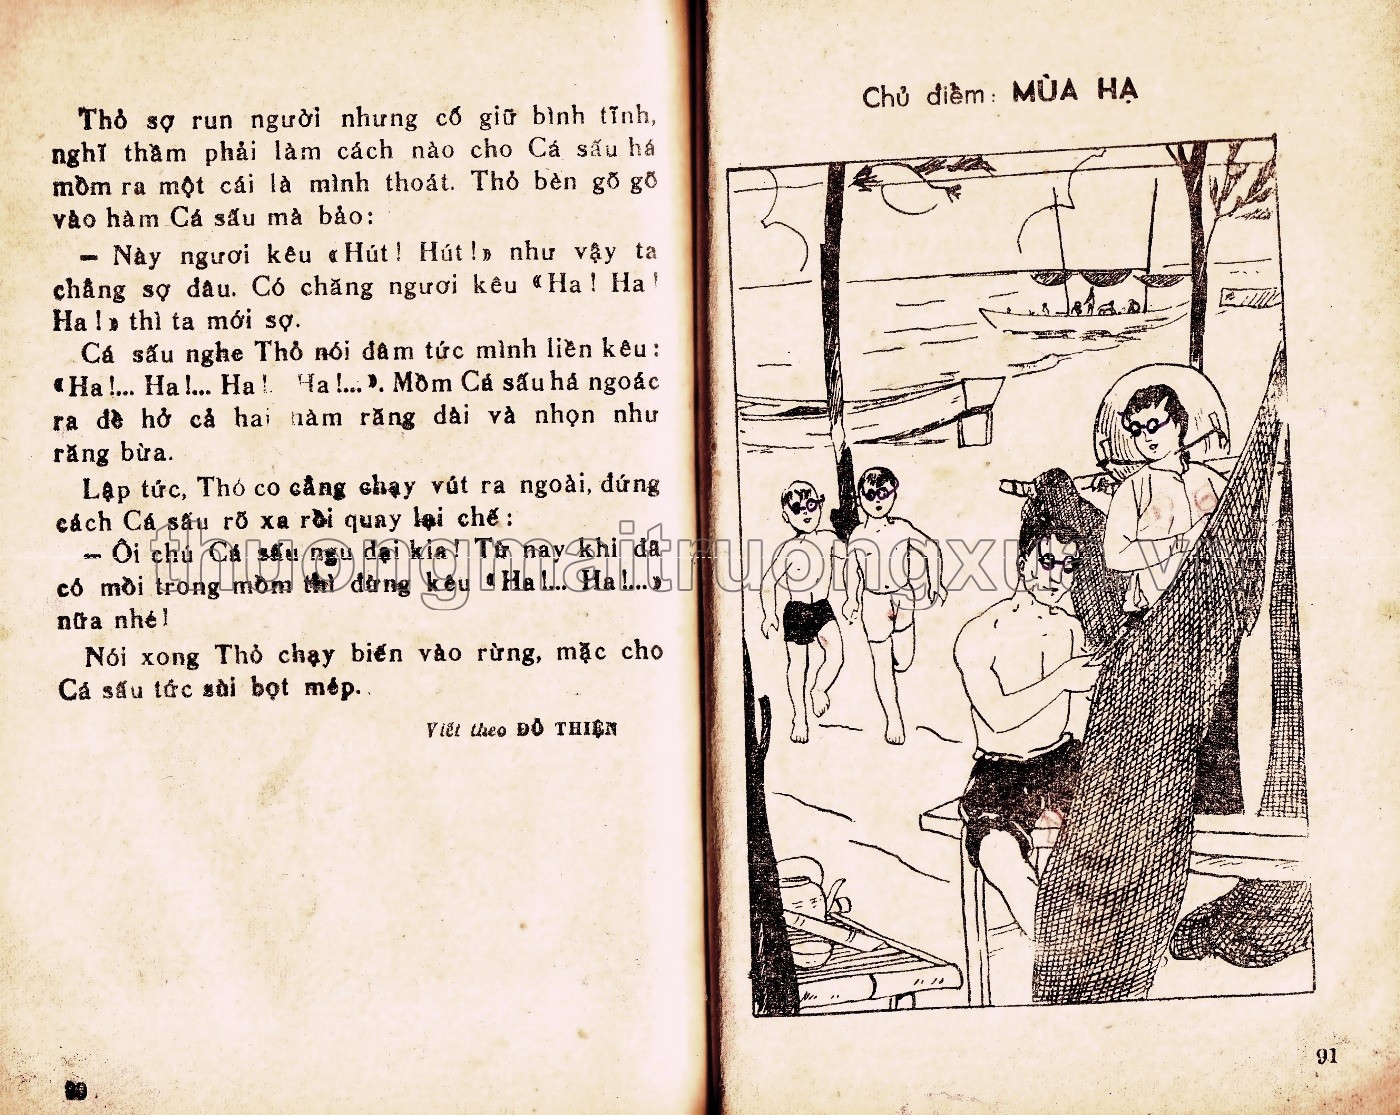 Thỏ sợ run người nhưng cố giữ bình tĩnh,
nghĩ thầm phải làm cách nào cho Cá sấu há
mồm ra một cái là mình thoát. Thỏ bèn gõ gõ
vào hàm Cá sấu mà bảo:
— Này ngươi kêu «Hút! Hút!» như vậy ta
chẳng sợ đâu. Có chăng ngươi kêu «Ha! Ha!
Ha!» thì ta mới sợ.
Cá sấu nghe Thỏ nói đâm tức mình liền kêu:
«Ha!... Ha!... Ha! Ha!...». Mồm Cá sấu há ngoác
ra để hở cả hai hàm răng dài và nhọn như
răng bừa.
Lập tức, Thỏ co cẳng chạy vút ra ngoài, đứng
cách Cá sấu rõ xa rồi quay lại chế:
— Ôi chú Cá sấu ngu dại kia! Từ nay khi đã
có mồi trong mồm thì đừng kêu «Ha!... Ha!...»
nữa nhé!
Nói xong Thỏ chạy biến vào rừng, mặc cho
Cá sấu tức sùi bọt mép.
Viết theo ĐỖ THIỆN
90
Chủ điểm: MÙA HẠ
91
thuongmaitruongxua.v